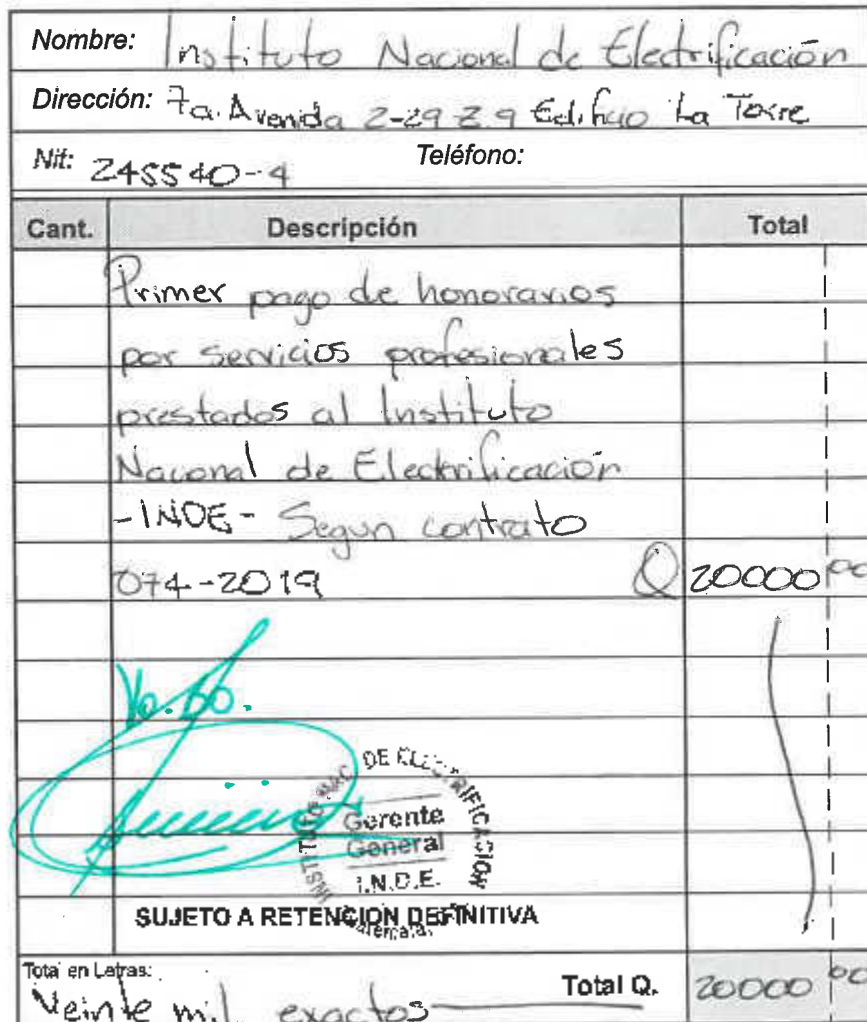 Nombre: Instituto Nacional de Electrificación
Dirección: 7a. Avenida 2-29 Z.9 Edificio La Torre
Nit: 245540-4 Teléfono:
Cant. Descripción Total
Primer pago de honorarios
por servicios profesionales
prestados al Instituto
Nacional de Electrificación
-INDE- Segun contrato
074-2019 Q 20000 00
Vo.Bo.
INSTITUTO NAC. DE ELECTRIFICACIÓN
Gerente
General
I.N.D.E.
Guatemala,
SUJETO A RETENCION DEFINITIVA
Total en Letras: Total Q. 20000 00
Veinte mil exactos